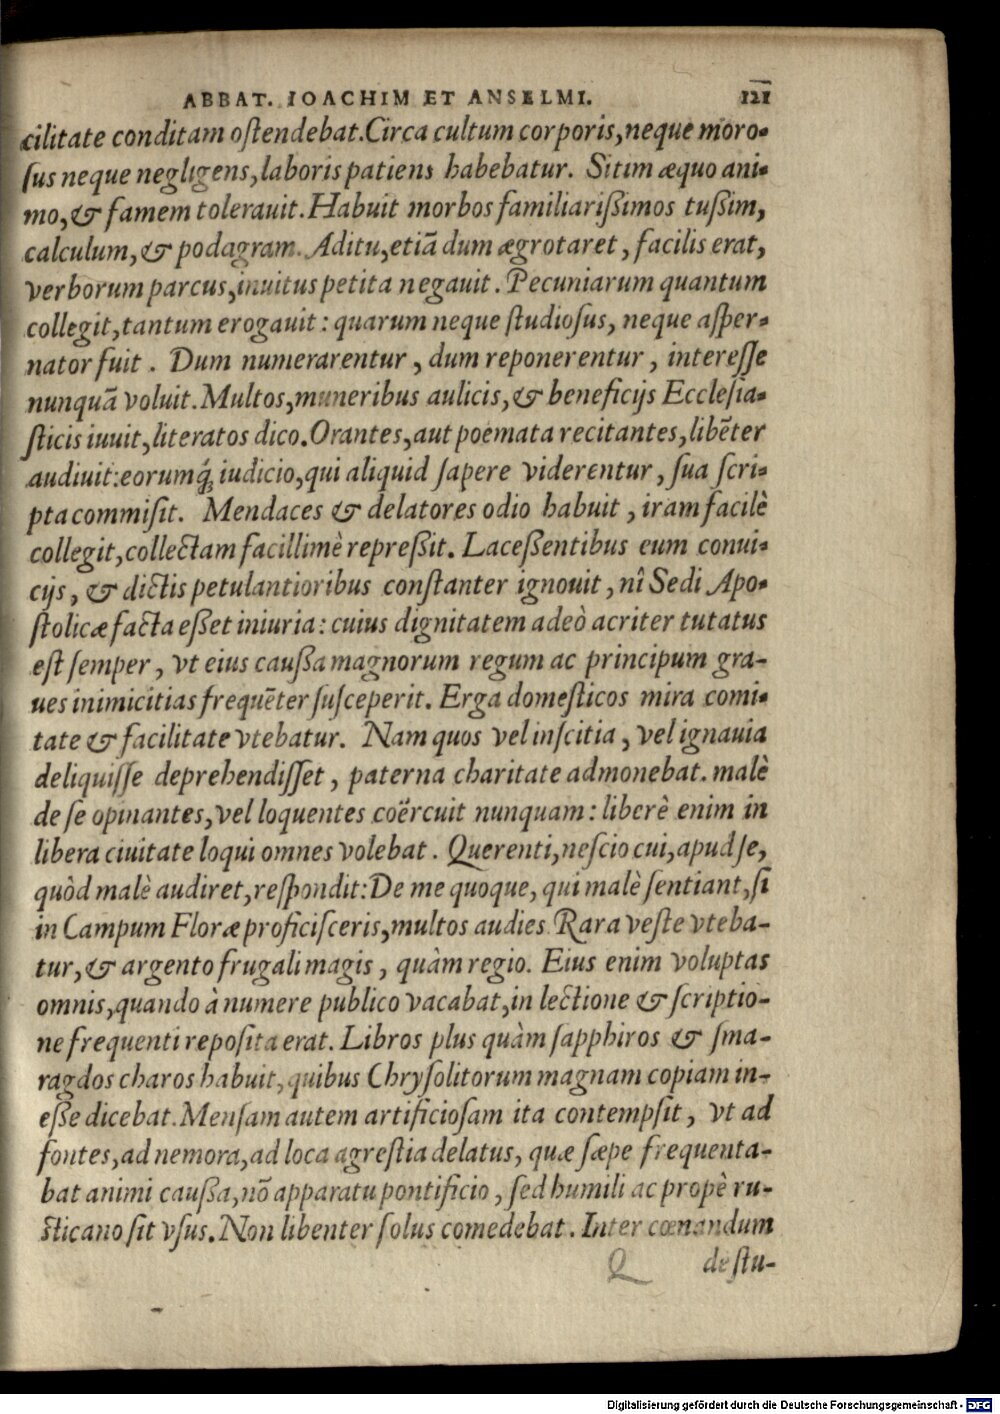 ABBAT. IOACHIM ET ANSELMI. 121
cilitate conditam oſtendebat. Circa cultum corporis, neque moro-
ſus neque negligens, laboris patiens habebatur. Sitim æquo ani-
mo, & famem tolerauit. Habuit morbos familiarißimos tußim,
calculum, & podagram. Aditu, etiā dum ægrotaret, facilis erat,
verborum parcus, inuitus petita negauit. Pecuniarum quantum
collegit, tantum erogauit: quarum neque ſtudioſus, neque aſper-
nator fuit. Dum numerarentur, dum reponerentur, intereſſe
nunquā voluit. Multos, muneribus aulicis, & beneficijs Eccleſia-
ſticis iuuit, literatos dico. Orantes, aut poemata recitantes, libēter
audiuit: eorumq́; iudicio, qui aliquid ſapere viderentur, ſua ſcri-
pta commiſit. Mendaces & delatores odio habuit, iram facilè
collegit, collectam facillimè repreßit. Laceßentibus eum conui-
cijs, & dictis petulantioribus conſtanter ignouit, nî Sedi Apo-
ſtolicæ facta eßet iniuria: cuius dignitatem adeò acriter tutatus
eſt ſemper, vt eius caußa magnorum regum ac principum gra-
ues inimicitias frequēter ſuſceperit. Erga domeſticos mira comi-
tate & facilitate vtebatur. Nam quos vel inſcitia, vel ignauia
deliquiſſe deprehendiſſet, paterna charitate admonebat. malè
de ſe opinantes, vel loquentes coërcuit nunquam: liberè enim in
libera ciuitate loqui omnes volebat. Querenti, neſcio cui, apud ſe,
quòd malè audiret, reſpondit: De me quoque, qui malè ſentiant, ſi
in Campum Floræ proficiſceris, multos audies. Rara veſte vteba-
tur, & argento frugali magis, quàm regio. Eius enim voluptas
omnis, quando à numere publico vacabat, in lectione & ſcriptio-
ne frequenti repoſita erat. Libros plus quàm ſapphiros & ſma-
ragdos charos habuit, quibus Chryſolitorum magnam copiam in-
eße dicebat. Menſam autem artificioſam ita contempſit, vt ad
fontes, ad nemora, ad loca agreſtia delatus, quæ ſæpe frequenta-
bat animi caußa, nō apparatu pontificio, ſed humili ac propè ru-
ſticano ſit vſus. Non libenter ſolus comedebat. Inter cœnandum
Q de ſtu-
Digitalisierung gefördert durch die Deutsche Forschungsgemeinschaft - DFG